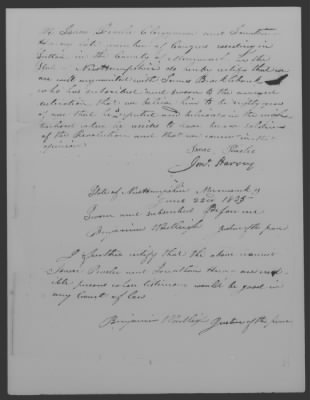 We Isaac Peaslee Clergyman and Jonathan
late member of Congress residing in
Sutton in the County of Merrimack in the
State of New Hampshire do certify that we
are well acquainted with James
who has subscribed and sworn to the annexed
declaration that we believe him to be eighty years
of age that he is reputed and believed in the neigh
borhood where he resides to have been a soldier
of the Revolution and that we concur in that
opinion
Isaac
Jon.
State of New Hampshire Merrimack ss
June 22d 1835
Sworn and subscribed Before me
Benjamin Justice of the peace
I further certify that the above named
Isaac and Jonathan are cred
ible persons whose testimony would be good in
any Court of law
Benjamin Justice of the peace